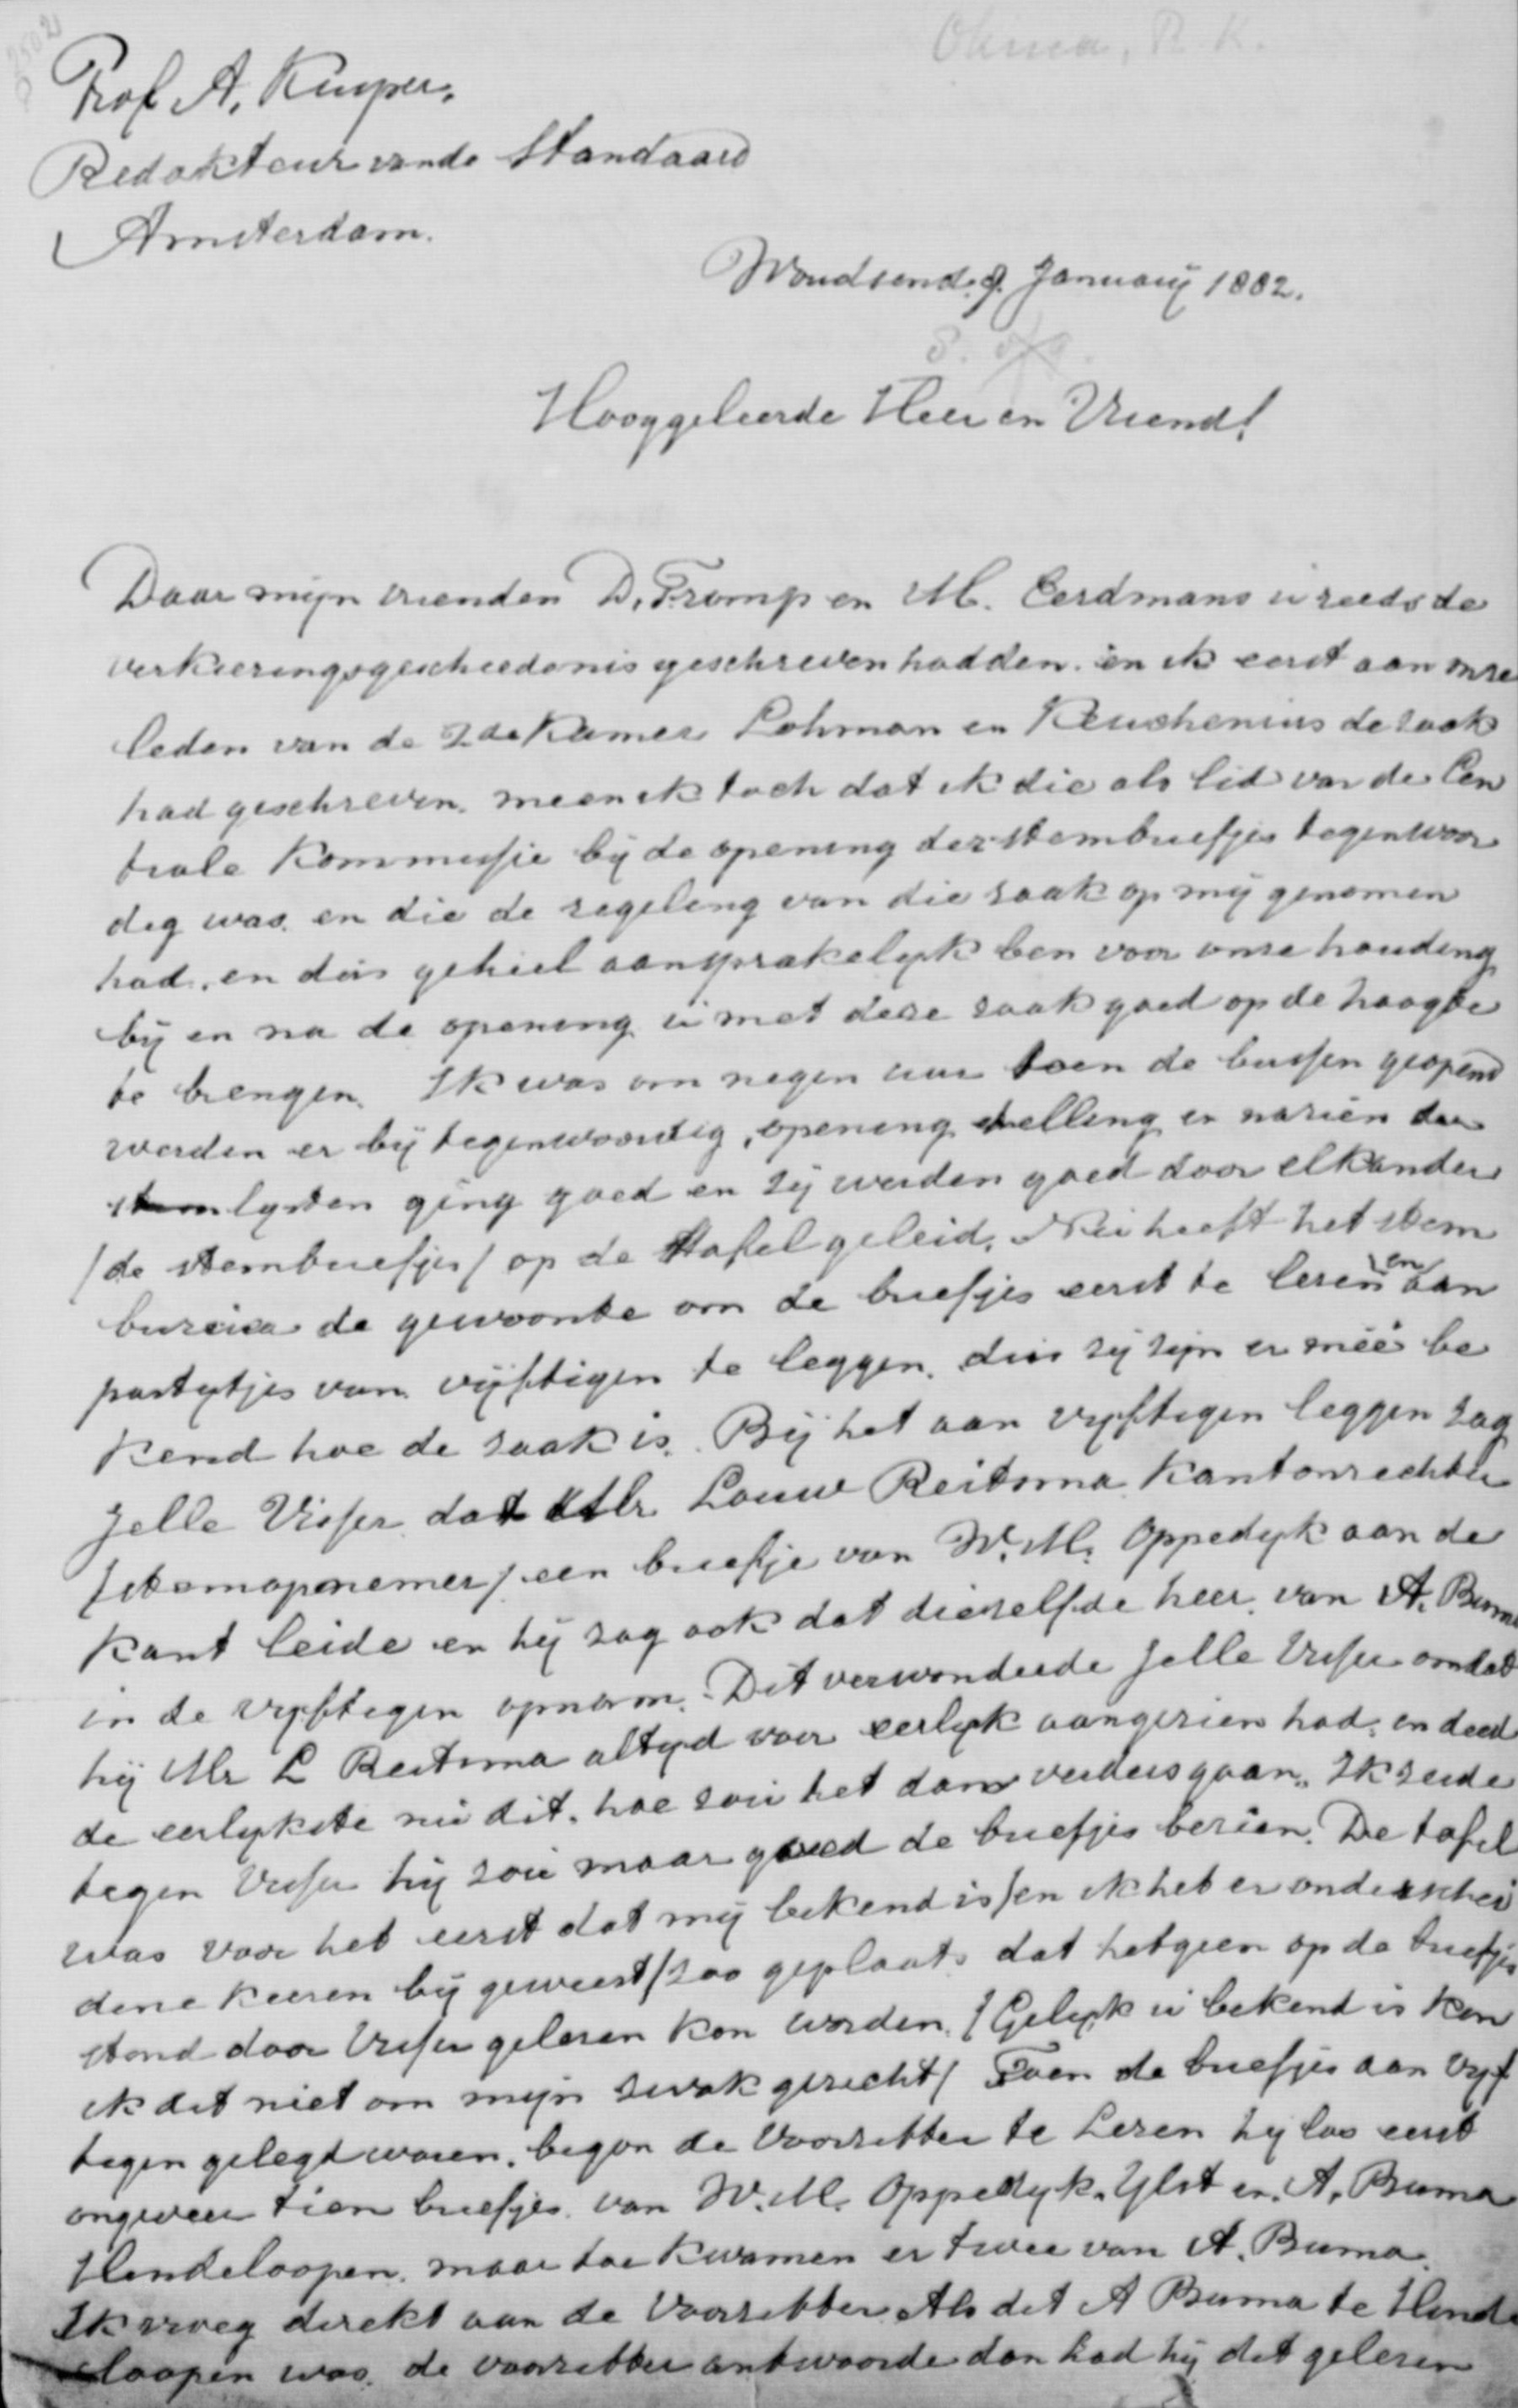 Okma, R. K.
Prof A. Kuyper,
Redakteur vande Standaard
Amsterdam.
Woudsend. 9 January 1882.
Hooggeleerde Heer en Vriend!
Daar mijn vrienden D. Tromp en M. Eerdmans ú reeds de
verkieringsgescheedenis geschreven hadden. en ik eerst aan onze
leden van de 2de Kamer Lohman en Keuchenius de zaak
had geschreven. meen ik toch dat ik die als lid van de Cen
trale Kommissie bij de opening der stembriefjes tegenwoor
dig was. en die de regeling van die zaak op mij genomen
had. en dús geheel aansprakelijk ben voor onze houding
bij en na de opening ú met deze zaak goed op de hoogte
te brengen. Ik was om negen uur toen de bussen geopend
werden er bij tegenwoordig, opening telling en nazien der
lysten ging goed en zij werden goed door elkander
/de stembriefjes/ op de tafel geleid. Nú heeft het stem
bureau de gewoonte om de briefjes eerst te lezen en aan
partytjes van vijftigen te leggen. dús zij zijn er meê be
kend hoe de zaak is. Bij het aan vyftigen leggen zag
Jelle Visser dat Mr. Louw Reitsma Kantonrechter
/stemopnemer/ een briefje van W. M. Oppedyk aan de
kant leide en hij zag ook dat diezelfde heer van A. Buma
in de vyftigen opnam. Dit verwonderde Jelle Visser omdat
hij Mr L Reitsma altyd voor eerlyk aangezien had. en deed
de eerlykste nú dit. hoe zoú het dan verders gaan. Ik zeide
tegen Visser hij zoú maar goed de briefjes bezien. De tafel
was voor het eerst dat mij bekend is /en ik heb er onderschei
dene keeren bij geweest/ zoo geplaats dat hetgeen op de briefjes
stond door Visser gelezen kon worden. /Gelyk ú bekend is kon
ik dit niet om mijn zwak gezicht/ Toen de briefjes aan vyf
tegen gelegd waren. begon de Voorzitter te Lezen hij las eerst
ongeveer tien briefjes van W. M. Oppedyk. Ylst en. A. Buma
Hindeloopen. maar toe kwamen er twee van A. Buma.
Ik vroeg direkt aan de Voorzitter Als dit A Buma te Hinde
loopen was. de voorzitter antwoorde dan had hij dit gelezen